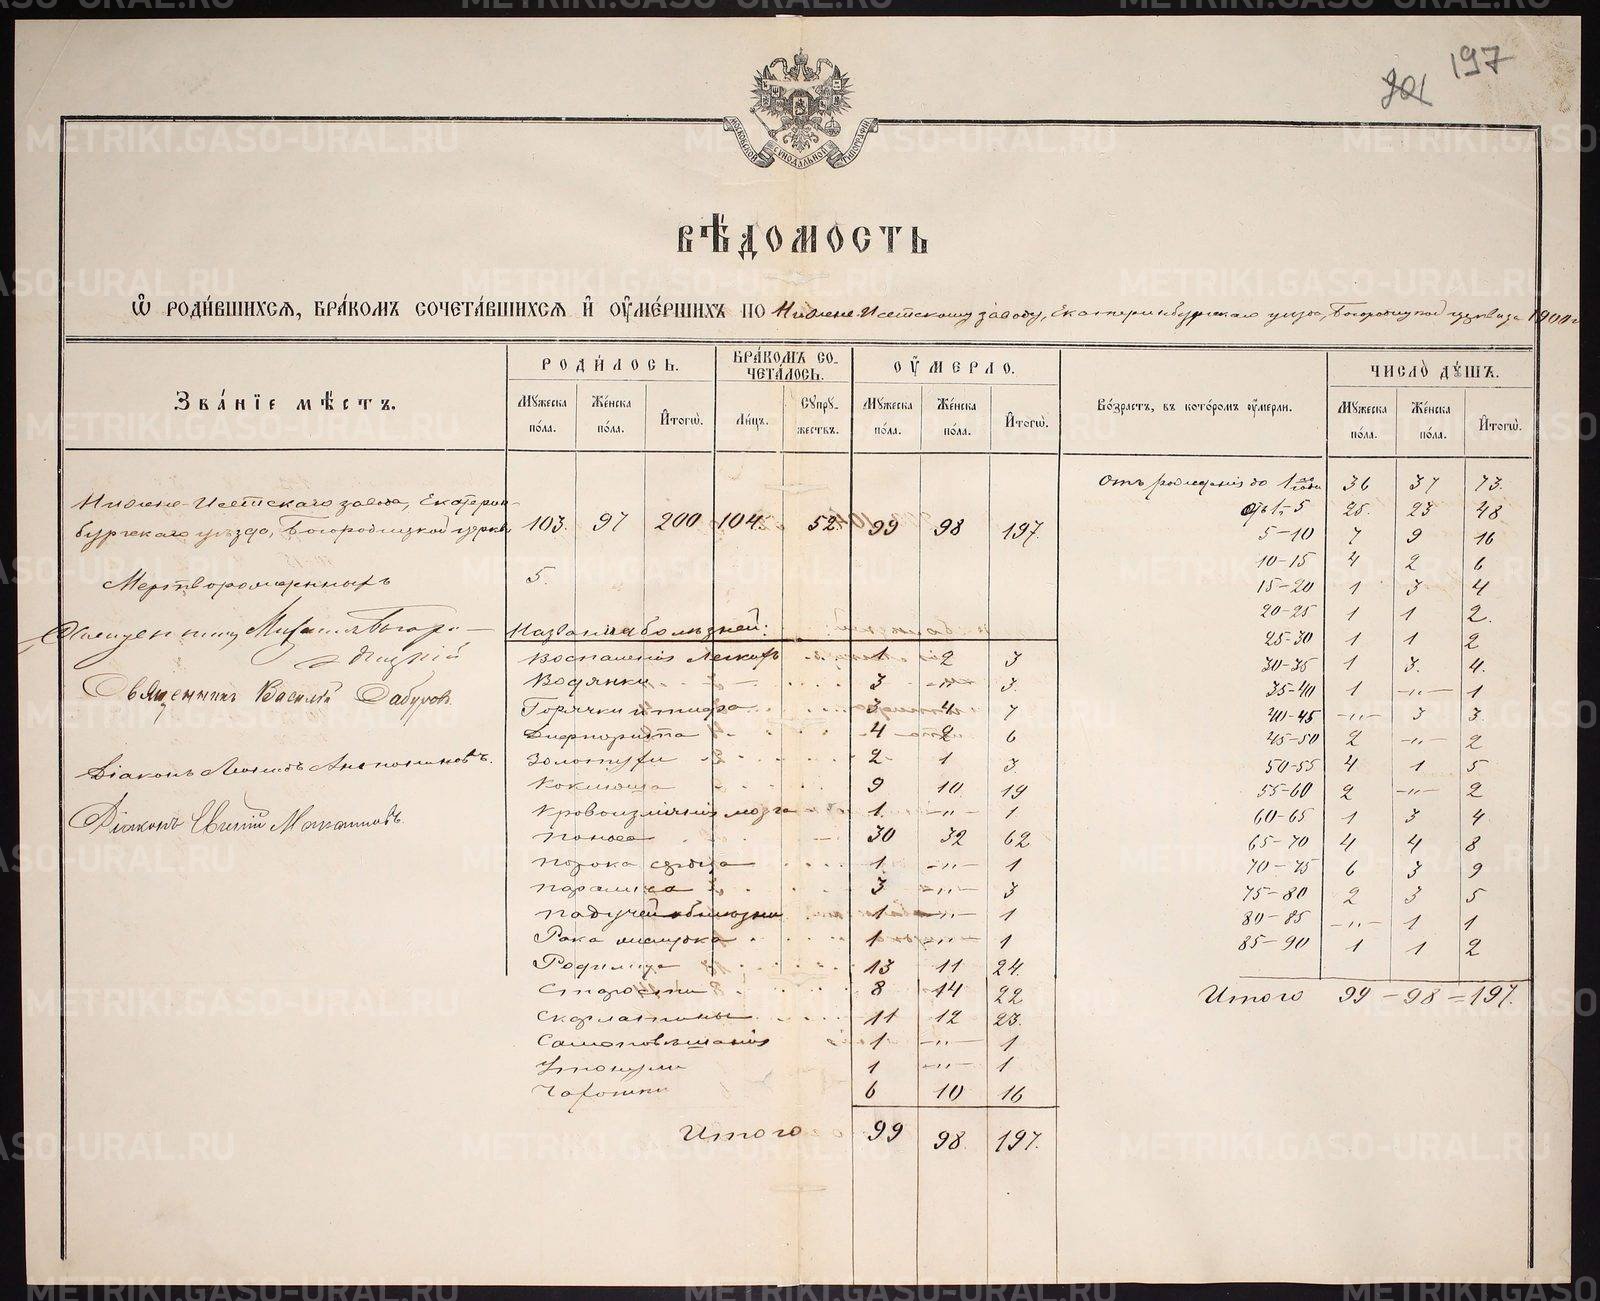 201 197
МОСКОВСКОЙ СѴНОДАЛЬНОЙ ТИПОГРАФІИ
ВѢДОМОСТЬ
Ѡ РОДИВШИХСЯ, БРАКОМЪ СОЧЕТАВШИХСЯ И ОУМЕРШИХЪ ПО Нижне-Исетскому заводу, Екатеринбургскаго уѣзда, Богородицкой церкви за 1900 г.
ЗВАНІЕ МѢСТЪ.
РОДИЛОСЬ.
БРАКОМЪ СО-ЧЕТАЛОСЬ.
ОУМЕРЛО.
Возрастъ, въ которомъ оумерли.
ЧИСЛО ДУШЪ.
Мужеска пола. Женска пола. Итогѡ. Лицъ. Супружествъ. Мужеска пола. Женска пола. Итогѡ. Мужеска пола. Женска пола. Итогѡ.
Нижне-Исетскаго завода, Екатерин-
бургскаго уѣзда, Богородицкой церкви 103. 97 200 104. 52. 99 98 197.
Мертворожденныхъ 5.
Священникъ Михаилъ Богоро-
дицкій
Священникъ Василій
Діаконъ Леонидъ
Діаконъ Евгеній
Названія болѣзней:
Воспаленія легкихъ 1 2 3
Водянки 3 -„- 3.
Горячки и тифа 3 4 7
Дифтерита 4 2 6
Золотухи 2 1 3.
Коклюша 9 10 19
Кровоизліянія мозга 1. -„- 1
Поноса 30 32 62
Порока сердца 1. -„- 1
Паралича 3 -„- 3
Падучей болѣзни 1 -„- 1
Рака желудка 1 -„- 1
Родимца 13 11 24.
Старости 8 14 22
Скарлатины 11 12 23.
Самоповѣшанія 1 -„- 1
Утонули 1 -„- 1
Чахотки 6 10 16
Итого 99 98. 197.
Отъ рожденія до 1 года 36 37 73.
Отъ 1 - 5 25. 23 48
5-10 7 9 16
10-15 4 2 6
15-20 1 3 4
20-25 1 1 2.
25-30 1 1 2
30-35 1 3. 4.
35-40 1 -„- 1
40-45 -„- 3 3.
45-50 2 -„- 2
50-55 4 1 5
55-60 2 -„- 2
60-65 1 3 4
65-70 4 4 8
70-75 6 3 9
75-80 2 3 5
80-85 -„- 1 1
85-90 1 1 2
Итого 99 - 98 = 197.
METRIKI.GASO-URAL.RU